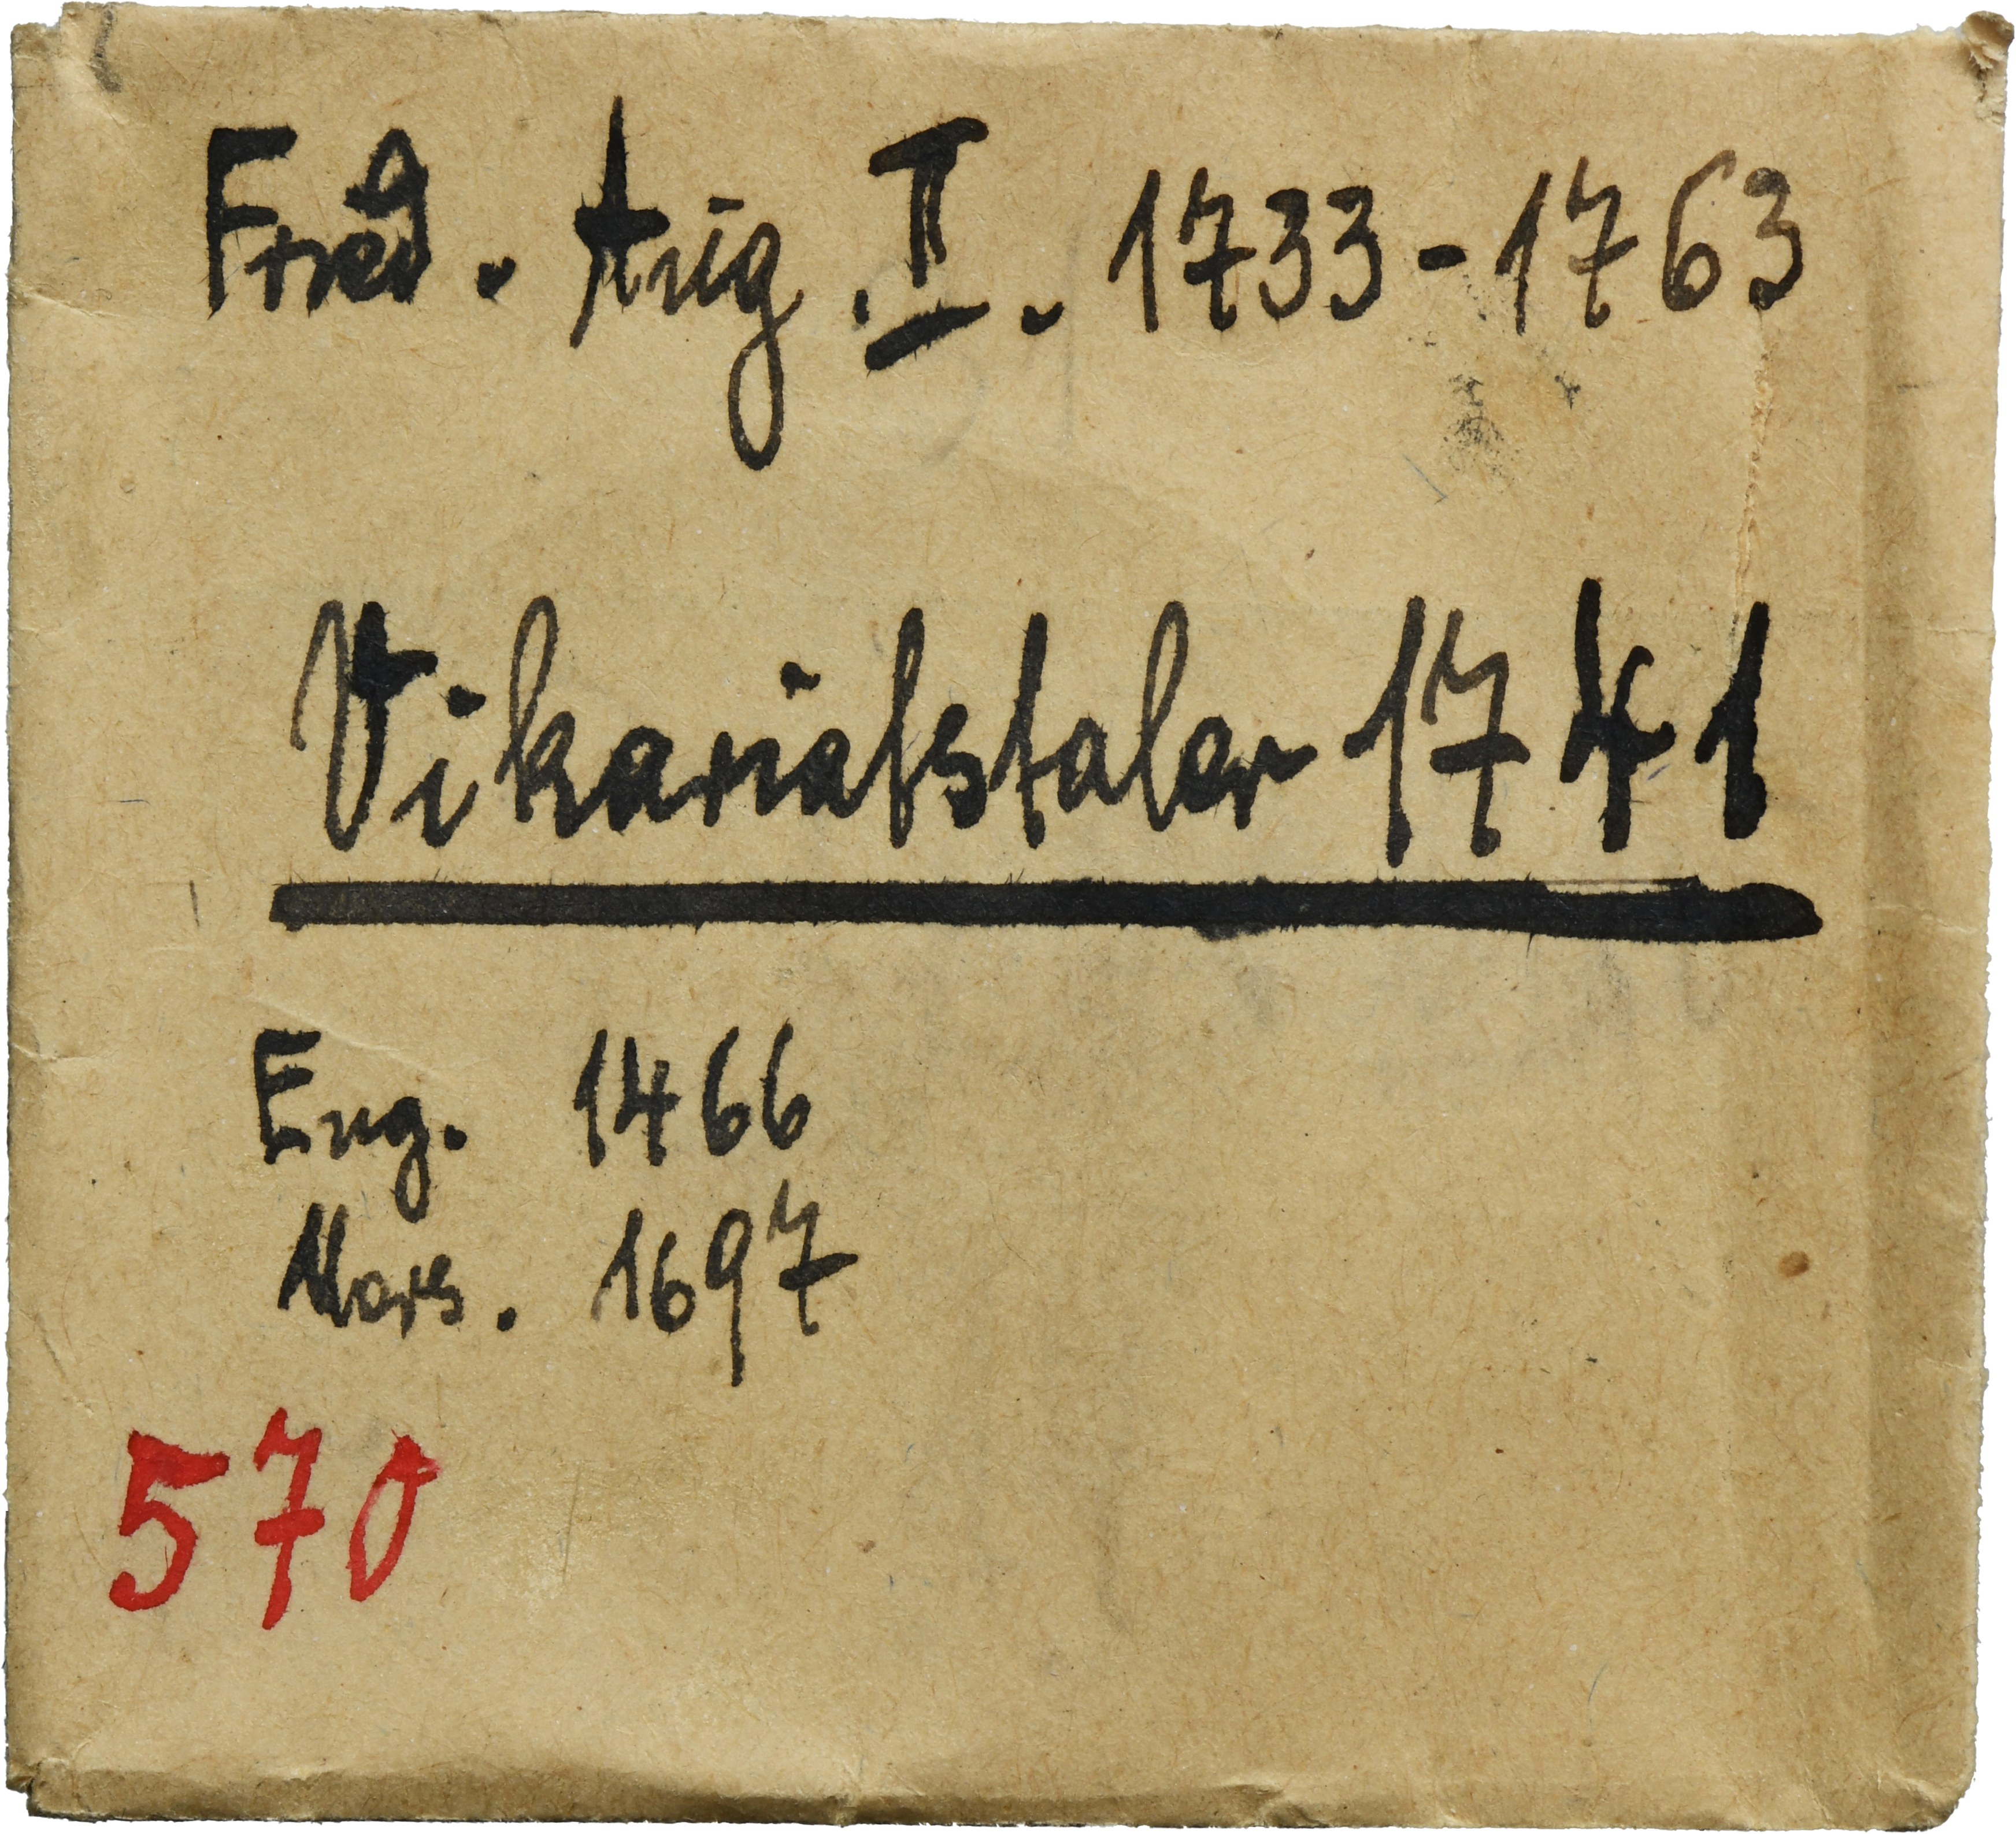 Fried. Aug. II. 1733-1763
Vikariatstaler 1741
Eng. 1466
Mors. 1697
570